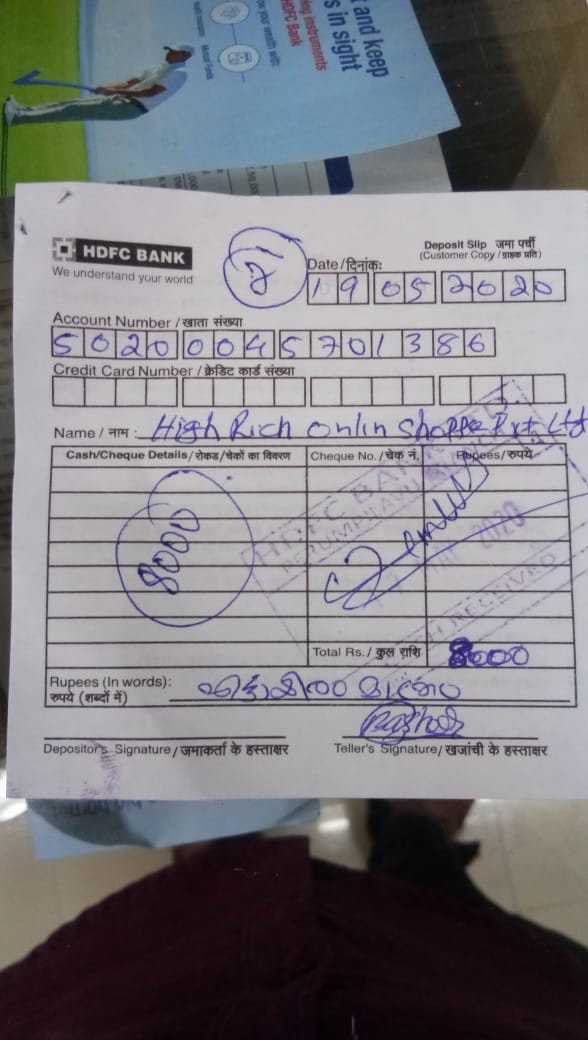 t and keep
s in sight
ring instruments
HDFC Bank
ow your wealth with:
Mutual Funds
HDFC BANK
We understand your world
Deposit Slip जमा पर्ची
(Customer Copy / ग्राहक प्रति)
Date / दिनांक:
19 05 2020
Account Number / खाता संख्या
50200045701386
Credit Card Number / क्रेडिट कार्ड संख्या
Name / नाम : High Rich Onlin Shoppe Pvt Ltd
Cash/Cheque Details / रोकड/चेकों का विवरण Cheque No. / चेक नं. Rupees/रुपये
8000
HDFC BANK
PERUMPILAVU
2020
CASH RECEIVED
Total Rs. / कुल राशि 8000
Rupees (In words): എട്ടായിരം മാത്രം
रुपये (शब्दों में)
Depositor's Signature / जमाकर्ता के हस्ताक्षर Teller's Signature / खजांची के हस्ताक्षर